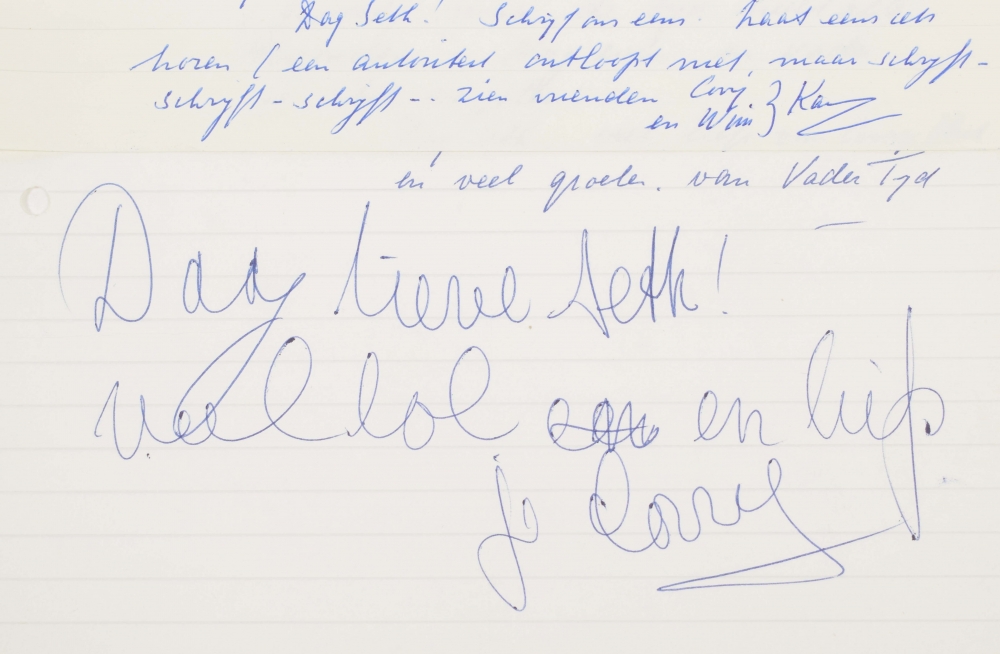 Dag Seth! Schryf ons eens. Laat eens iets
horen (een autoriteit ontloopt niet, maar schryft-
schryft - schryft -.. zien vrienden Corry
en Wim } Kan
en veel groeten. van Vader Tyd
Dag lieve Seth!
veel lol en liefs
je Corry